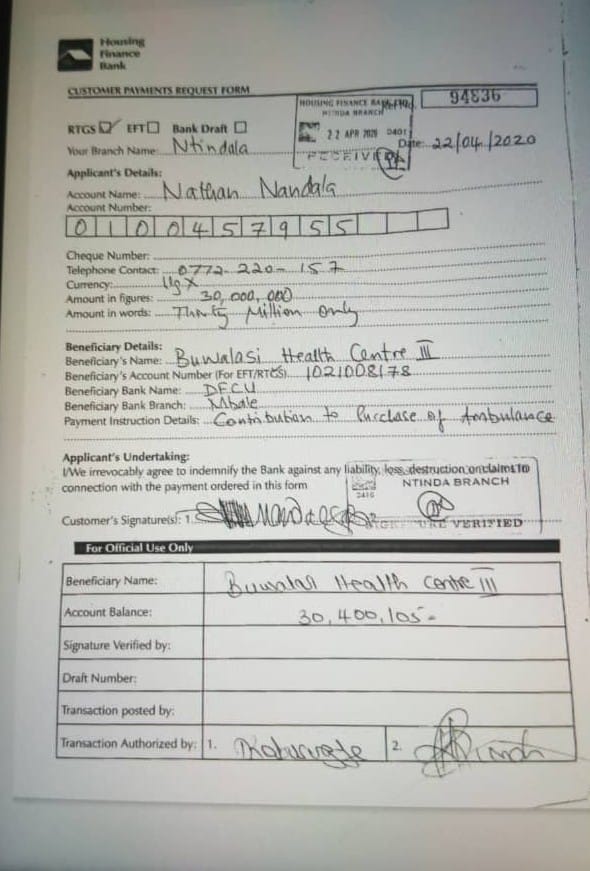 Housing
Finance
Bank
CUSTOMER PAYMENTS REQUEST FORM
94836
HOUSING FINANCE BANK
NTINDA BRANCH
22 APR 2020 0401
RECEIVED
RTGS ☑ EFT ☐ Bank Draft ☐
Date: 22/04/2020
Your Branch Name: Ntindala
Applicant's Details:
Account Name: Nathan Nandala
Account Number:
0100457955
Cheque Number:
Telephone Contact: 0772-220-157
Currency: UgX
Amount in figures: 30,000,000
Amount in words: Thirty Million only
Beneficiary Details:
Beneficiary's Name: Buwalasi Health Centre III
Beneficiary's Account Number (For EFT/RTGS) 1021008178
Beneficiary Bank Name: DFCU
Beneficiary Bank Branch: Mbale
Payment Instruction Details: Contribution to Purchase of Ambulance
Applicant's Undertaking:
I/We irrevocably agree to indemnify the Bank against any liability, loss, destruction or claims
connection with the payment ordered in this form
NTINDA BRANCH
SIGNATURE VERIFIED
Customer's Signature(s): 1.
For Official Use Only
Beneficiary Name: Buwalasi Health Centre III
Account Balance: 30,400,105-
Signature Verified by:
Draft Number:
Transaction posted by:
Transaction Authorized by: 1. 2.